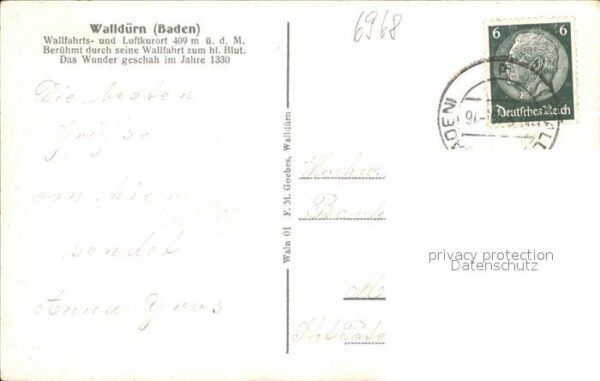 Walldürn (Baden)
Wallfahrts- und Luftkurort 409 m ü. d. M.
Berühmt durch seine Wallfahrt zum hl. Blut.
Das Wunder geschah im Jahre 1330
6968
6 6
Deutsches Reich
BADEN
Die besten
Grüße
von hier
sendet
Anna Gros
Waln 01 F. M. Goebes, Walldürn
privacy protection
Datenschutz